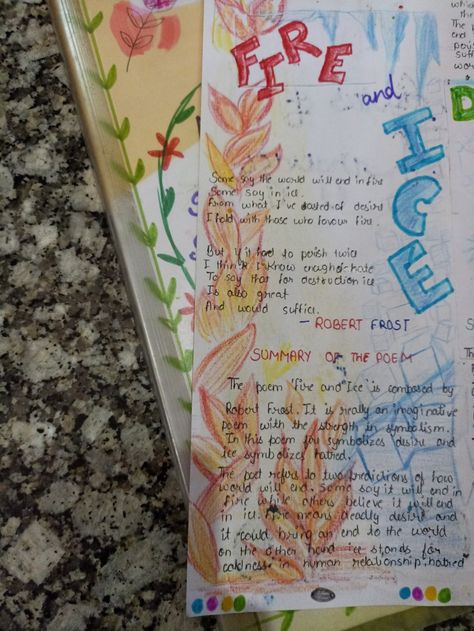 FIRE
and
ICE
Some say the world will end in fire
Some say in ice.
From what I've tasted of desire
I hold with those who favour fire
But if it had to perish twice
I think I know enough of hate
To say that for destruction ice
Is also great
And would suffice.
– ROBERT FROST
SUMMARY OF THE POEM
The poem 'fire and Ice' is composed by
Robert Frost. It is really an imaginative
poem with the strength in symbolism.
In this poem fire symbolizes desire and
ice symbolizes hatred.
The poet refers to two predictions of how
world will end. Some say it will end in
fire while others believe it will end
in ice. Fire means deadly desire and
it could bring an end to the world
on the other hand ice stands for
coldness in human relationship, hatred